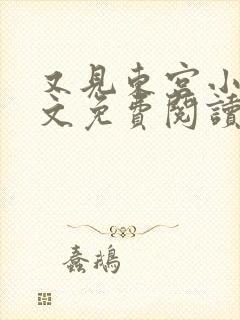 又見東宮小
文免費閱讀
蠢鵝